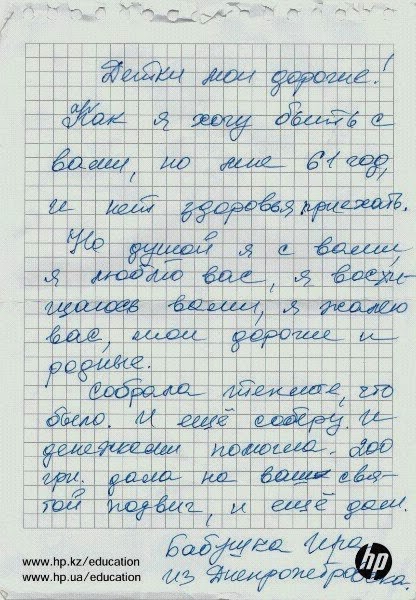 Детки мои дорогие!
Как я хочу быть с
вами, но мне 61 год,
и нет здоровья приехать.
Но душой я с вами,
я люблю вас, я восхи-
щаюсь вами, я жалею
вас, мои дорогие и
родные.
Собрала теплое, что
было. И ещё соберу. И
денежками помогла. 200
грн. дала на ваш свя-
той подвиг, и ещё дам.
Бабушка Ира
из Днепропетровска.
hp
www.hp.kz/education
www.hp.ua/education